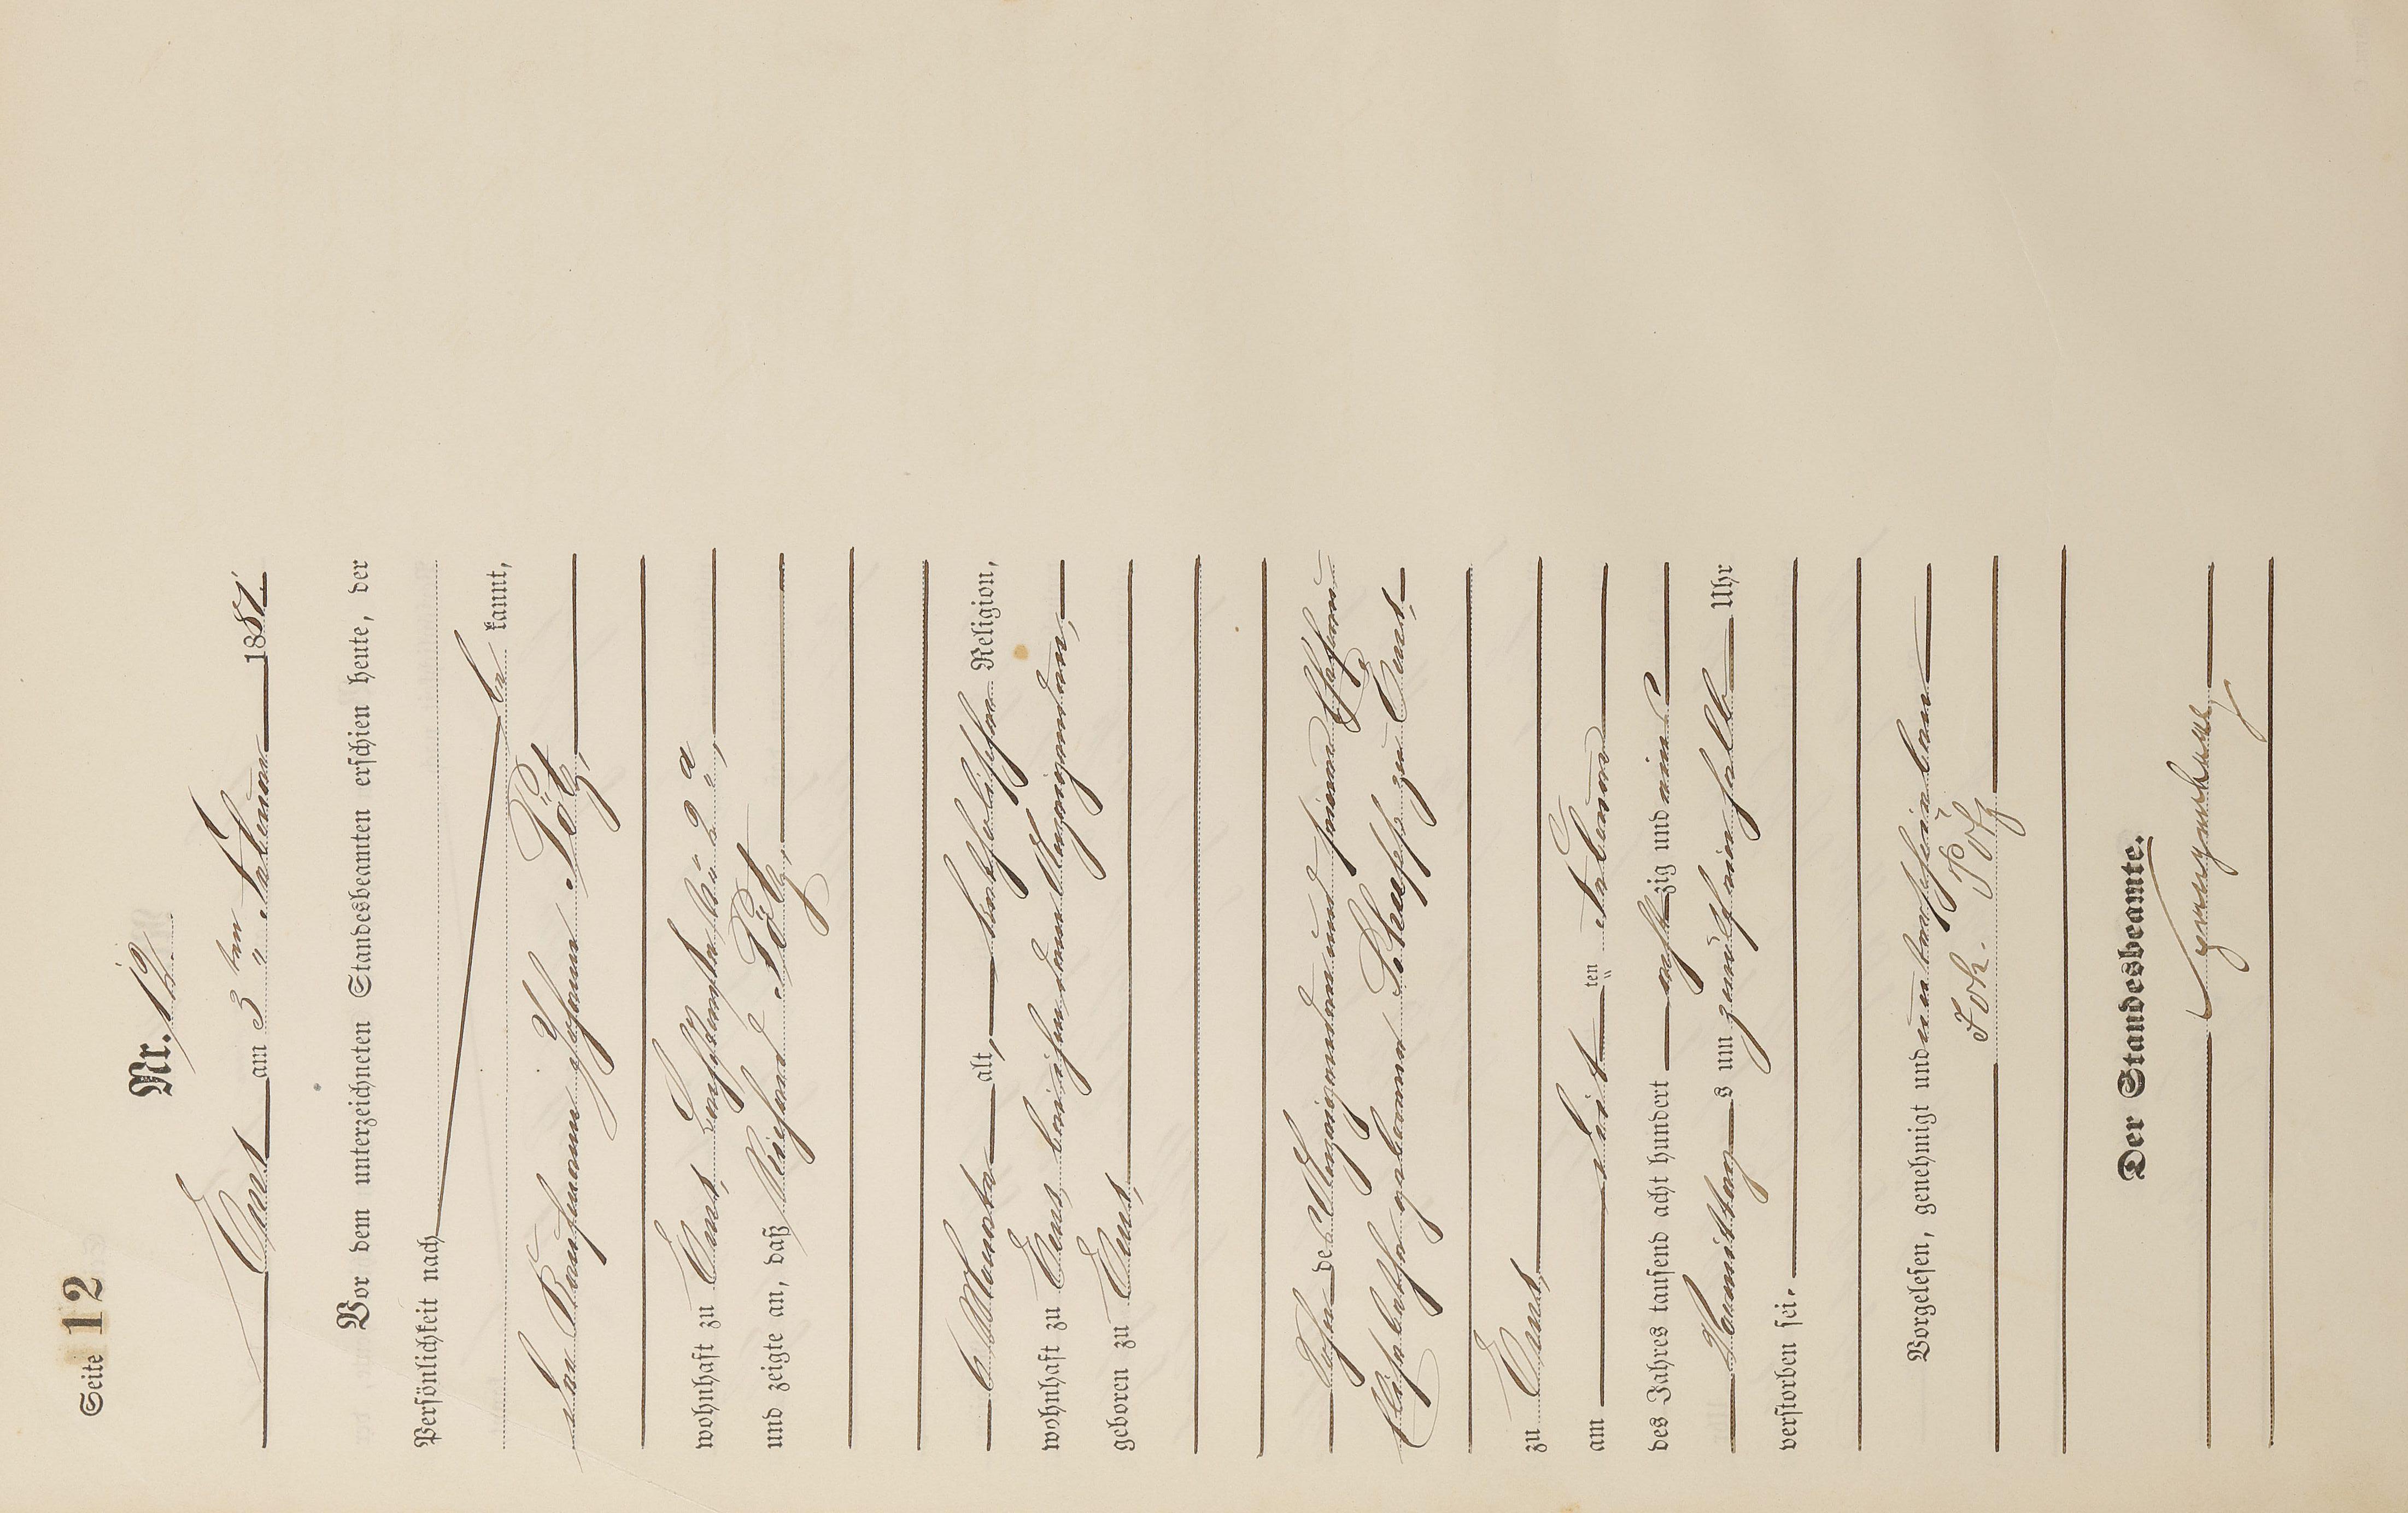 Seite 12
Nr. 12.
Ems am 3ten Februar 1881.
Vor dem unterzeichneten Standesbeamten erschien heute, der
Persönlichkeit nach
be kannt,
der Kaufmann Johann Pötz,
wohnhaft zu Ems,
und zeigte an, daß Richard Pötz,
6 Monate alt, katholischer Religion,
wohnhaft zu Ems bei ihm dem Anzeigenden,
geboren zu Ems,
Sohn des Anzeigenden und seiner Ehefrau
Elisabetha geborene zu Ems,
zu Ems,
am ersten ten Februar
des Jahres tausend acht hundert achtzig und eins
Vormittags um Uhr
verstorben sei.
Vorgelesen, genehmigt und unterschrieben
Joh. Pötz
Der Standesbeamte.